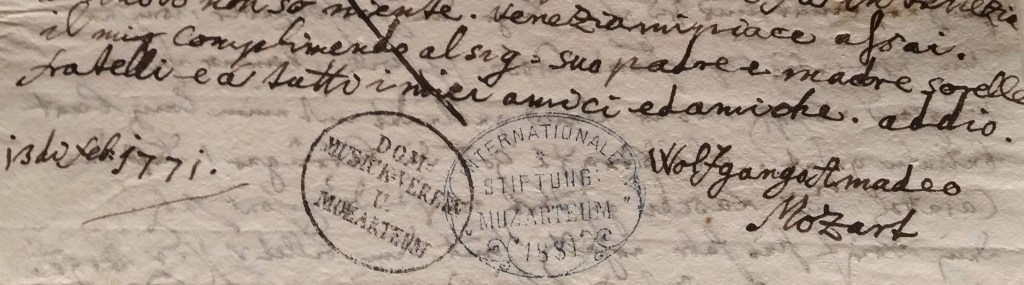 nuovo non so niente. venezia mi piace assai.
il mio complimento al sig: suo padre e madre sorelle
fratelli e a tutti i miei amici ed amiche. addio.
13 di feb. 1771.
DOM-
MUSIK-VEREIN
U.
MOZARTEUM
INTERNATIONALE
STIFTUNG:
„MOZARTEUM"
1881
Wolfgango Amadeo
Mozart